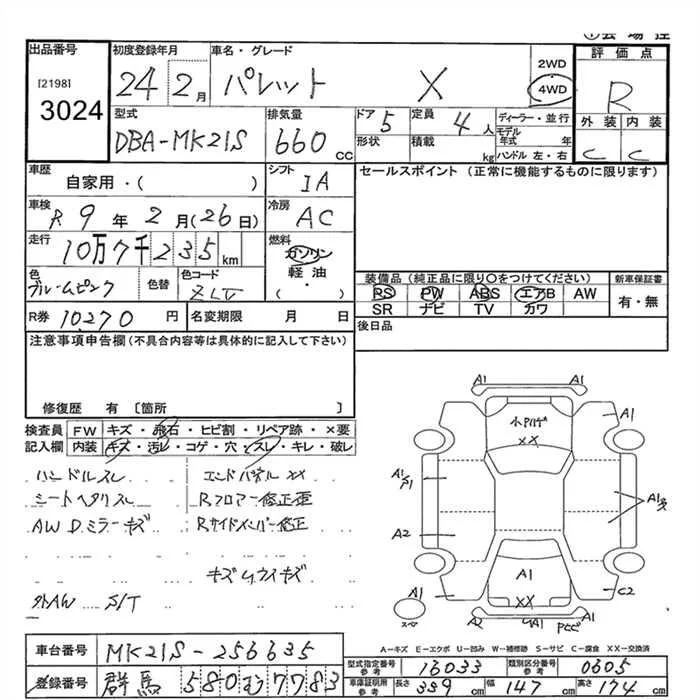 出品番号 初度登録年月 車名・グレード 2WD 評価点
[2198] 24 2月 パレット X 4WD R
3024
型式 排気量 ドア 5 定員 4人 ディーラー・並行 外装 内装
DBA-MK21S 660cc 形状 積載 kg モデル年式 年 C C
ハンドル 左・右
車歴 シフト セールスポイント (正常に機能するものに限ります)
自家用・( ) IA
車検 冷房
R9年2月(26日) AC
走行 燃料
10万7千235km ガソリン
軽油
・
( )
色 色替 色コード 装備品 (純正品に限り○をつけてください) 新車保証書
ブルームピンク PS PW ABS エアB AW 有・無
SR ナビ TV カワ
R券 10270円 名変期限 月 日 後日品
注意事項申告欄 (不具合内容等は具体的に記入して下さい)
修復歴 有 〔箇所 〕
検査員 FW キズ・飛石・ヒビ割・リペア跡・×要
記入欄 内装 キズ・汚レ・コゲ・穴・スレ・キレ・破レ
ハンドルスレ エンドパネル XX
シートヘタリスレ Rフロアー修正歪
AW D.ミラーキズ Rサイドメンバー修正
キズ
外AW S/T
A1 A1
A1
XX
A1
A2
A1
XX
C2
A2 A1
A-キズ E-エクボ U-凹み W-補修跡 S-サビ C-腐食 XX-交換済
車台番号 MK21S-256635
型式指定番号 参考 16033 類別区分番号 参考 0605
登録番号 群馬 580 む 7783
車庫証明用 参考 長さ 339cm 幅 147cm 高さ 174cm